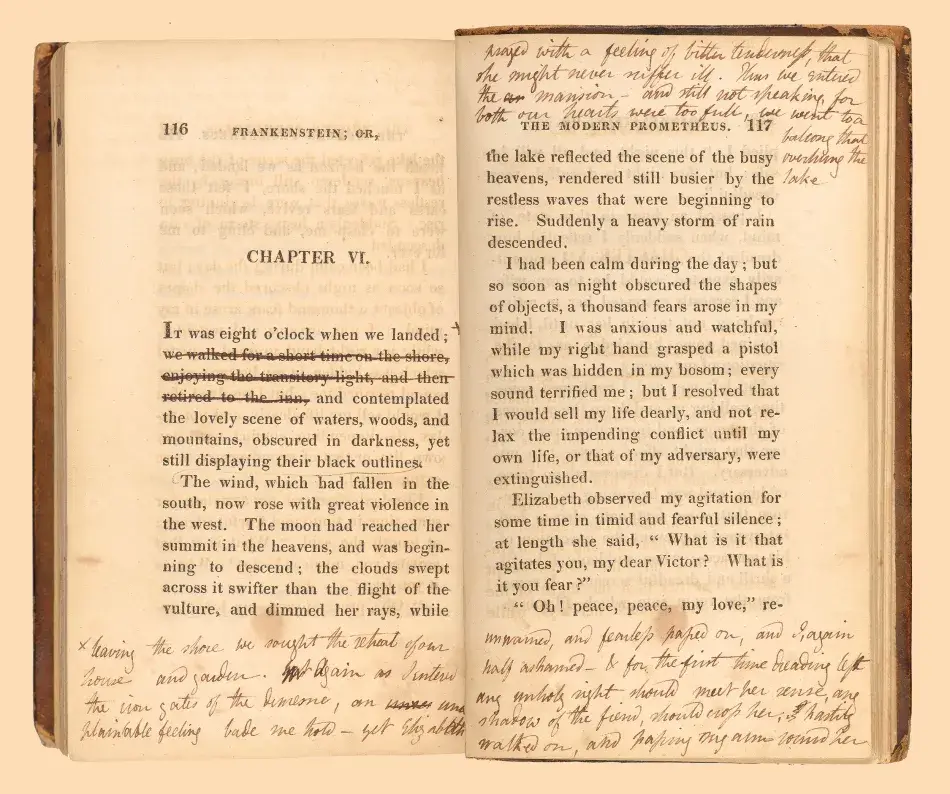 116 FRANKENSTEIN; OR,
CHAPTER VI.
IT was eight o'clock when we landed; +
we walked for a short time on the shore,
enjoying the transitory light, and then
retired to the inn, and contemplated
the lovely scene of waters, woods, and
mountains, obscured in darkness, yet
still displaying their black outlines.
The wind, which had fallen in the
south, now rose with great violence in
the west. The moon had reached her
summit in the heavens, and was begin-
ning to descend; the clouds swept
across it swifter than the flight of the
vulture, and dimmed her rays, while
x leaving the shore we sought the retreat of our
house and garden. Again as I entered
the iron gates of the demesne, an unex
plainable feeling bade me hold – yet Elizabeth
prayed with a feeling of bitter tenderness, that
she might never suffer ill. Thus we entered
the mansion – and still not speaking, for
both our hearts were too full, we went to a
balcony that
overhung the
lake
THE MODERN PROMETHEUS. 117
the lake reflected the scene of the busy
heavens, rendered still busier by the
restless waves that were beginning to
rise. Suddenly a heavy storm of rain
descended.
I had been calm during the day; but
so soon as night obscured the shapes
of objects, a thousand fears arose in my
mind. I was anxious and watchful,
while my right hand grasped a pistol
which was hidden in my bosom; every
sound terrified me; but I resolved that
I would sell my life dearly, and not re-
lax the impending conflict until my
own life, or that of my adversary, were
extinguished.
Elizabeth observed my agitation for
some time in timid and fearful silence;
at length she said, “ What is it that
agitates you, my dear Victor? What is
it you fear?”
“ Oh! peace, peace, my love,” re-
unwarned, and fearless passed on, and I, again
half ashamed – & for the first time dreading lest
any unholy sight should meet her sense, any
shadow of the fiend, should cross her, hastily
walked on, and passing my arm round her